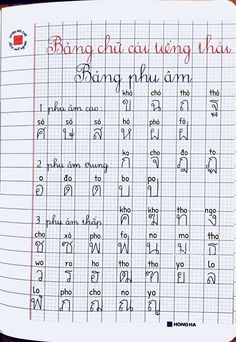 Bảng chữ cái tiếng thái
Bảng phụ âm
khỏ chỏ thỏ thỏ
1 phụ âm cao: ข ฉ ถ ฐ
sỏ sỏ sỏ hỏ phỏ fỏ
ศ ษ ส ห ผ ฝ
ko cho đo to
2 phụ âm trung ก จ ฎ ฏ
o đo to bo po
อ ด ต บ ป
kho kho tho ngo
3 phụ âm thấp: ค ฆ ง
cho xo pho fo no mo tho
ช ซ พ ฟ น ม ธ
wo ro ho tho tho yo lo
ว ร ฮ ฑ ย ล
lo pho cho no yo
ฬ ภ ฌ ณ ญ
HONG HA